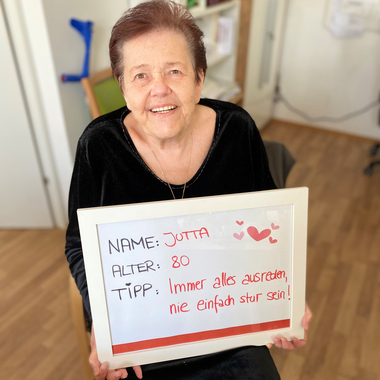 NAME: JUTTA
ALTER: 80
TIPP: Immer alles ausreden,
nie einfach stur sein!